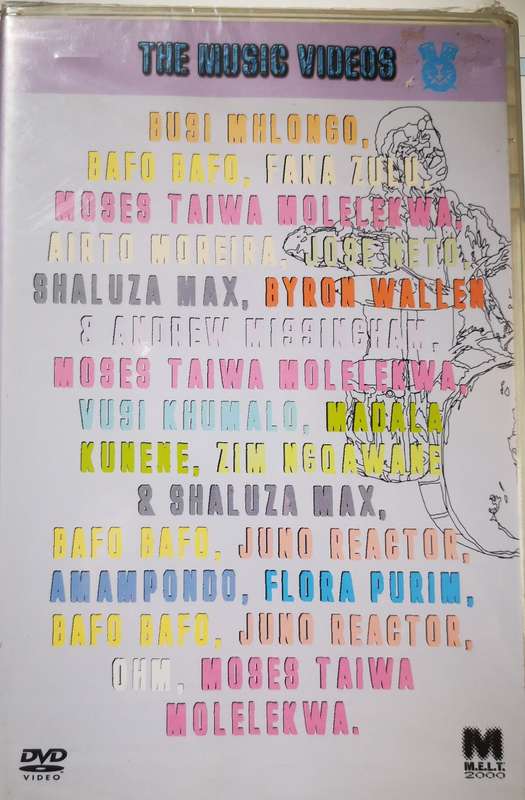 THE MUSIC VIDEOS
BUSI MHLONGO,
BAFO BAFO, FANA ZULU,
MOSES TAIWA MOLELEKWA,
AIRTO MOREIRA, JOSE NETO,
SHALUZA MAX, BYRON WALLEN
& ANDREW MISSINGHAM,
MOSES TAIWA MOLELEKWA,
VUSI KHUMALO, MADALA
KUNENE, ZIM NGQAWANE
& SHALUZA MAX,
BAFO BAFO, JUNO REACTOR,
AMAMPONDO, FLORA PURIM,
BAFO BAFO, JUNO REACTOR,
OHM, MOSES TAIWA
MOLELEKWA.
DVD
VIDEO
M
M.E.L.T.
2000